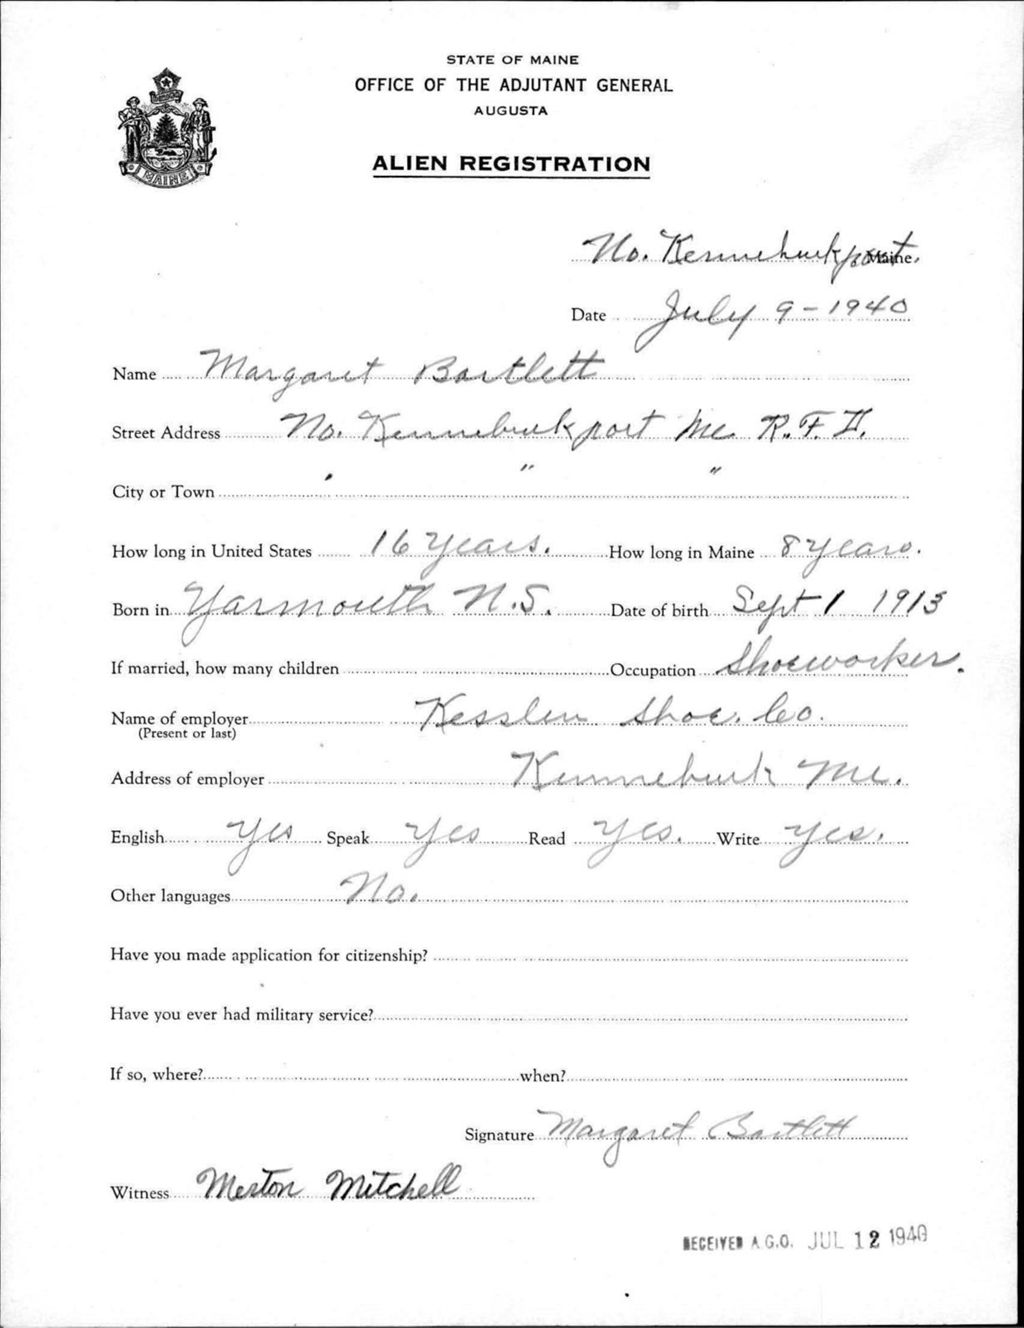 STATE OF MAINE
OFFICE OF THE ADJUTANT GENERAL
AUGUSTA
ALIEN REGISTRATION
MAINE
No. Kennebunkport, Maine.
Date July 9-1940
Name Margaret Bartlett
Street Address No. Kennebunkport Me. R.F.D.
City or Town " " "
How long in United States 16 years. How long in Maine 8 years.
Born in Yarmouth N.S. Date of birth Sept 1 1913
If married, how many children Occupation Shoeworker.
Name of employer Kesslen Shoe. Co.
(Present or last)
Address of employer Kennebunk Me.
English Yes Speak Yes Read Yes. Write Yes.
Other languages No.
Have you made application for citizenship?
Have you ever had military service?
If so, where? when?
Signature Margaret Bartlett
Witness Merton Mitchell
RECEIVED A.G.O. JUL 12 1940